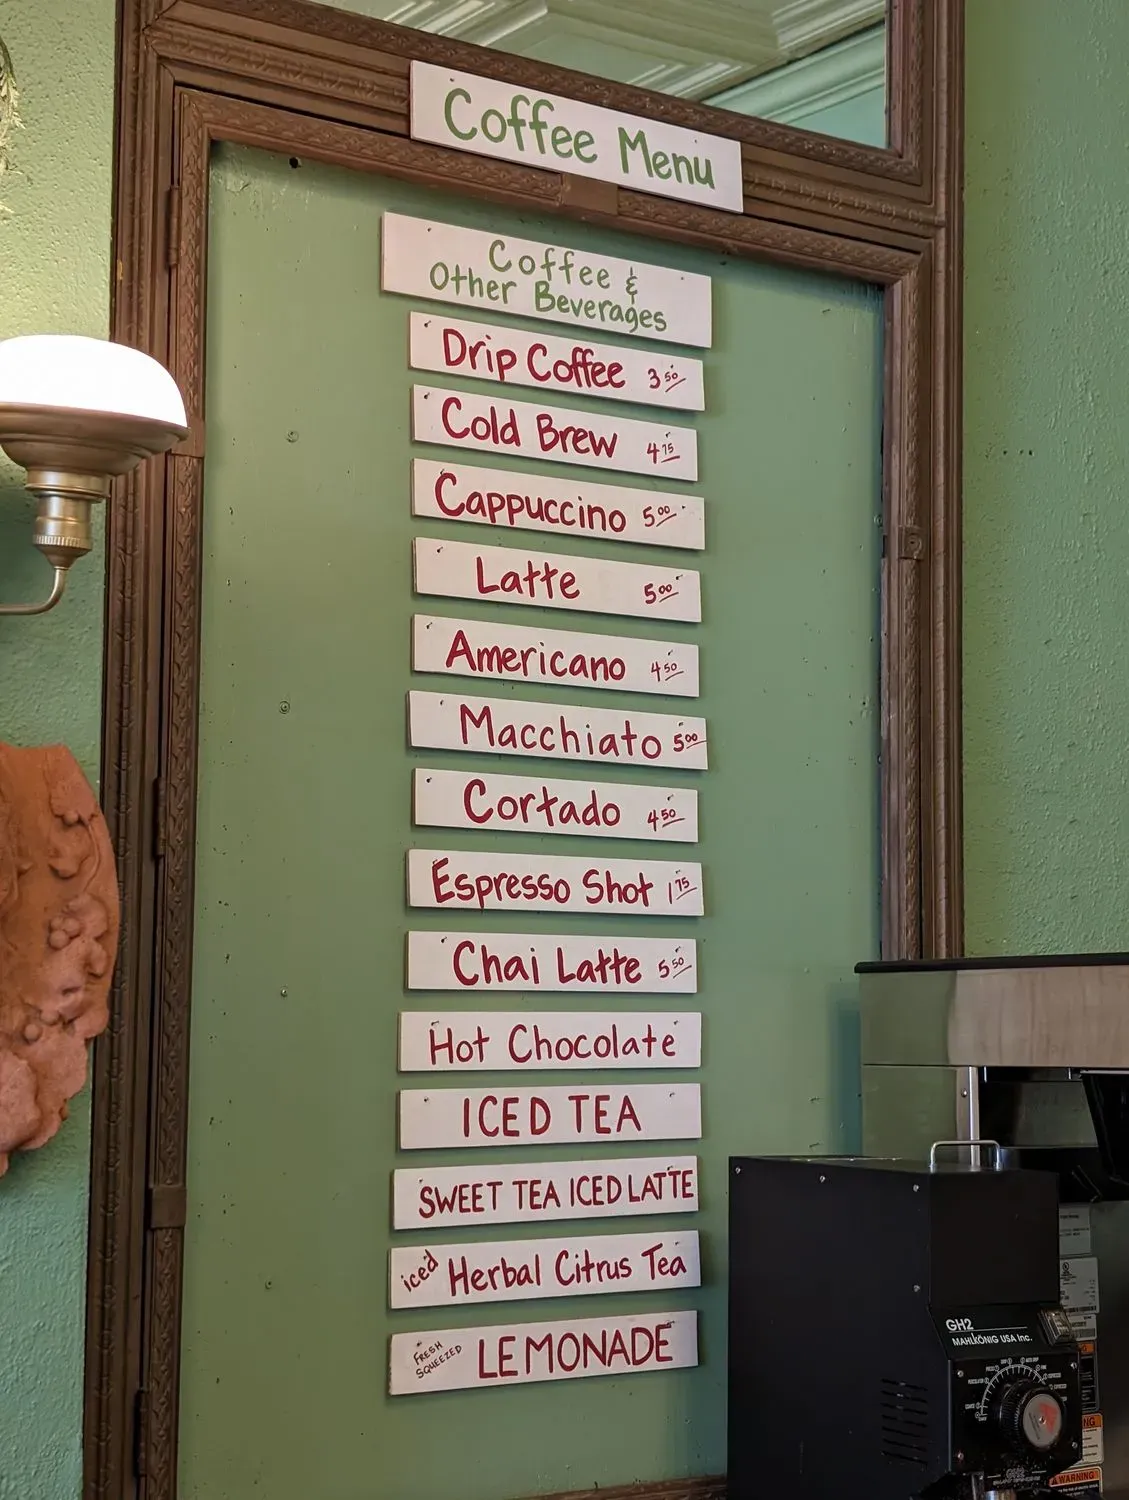 Coffee Menu
Coffee &
Other Beverages
Drip Coffee 3 50
Cold Brew 4 75
Cappuccino 5 00
Latte 5 00
Americano 4 50
Macchiato 5 00
Cortado 4 50
Espresso Shot 1 75
Chai Latte 5 50
Hot Chocolate
ICED TEA
SWEET TEA ICED LATTE
iced Herbal Citrus Tea
FRESH
SQUEEZED
LEMONADE
GH2
MAHLKÖNIG USA Inc.
WARNING